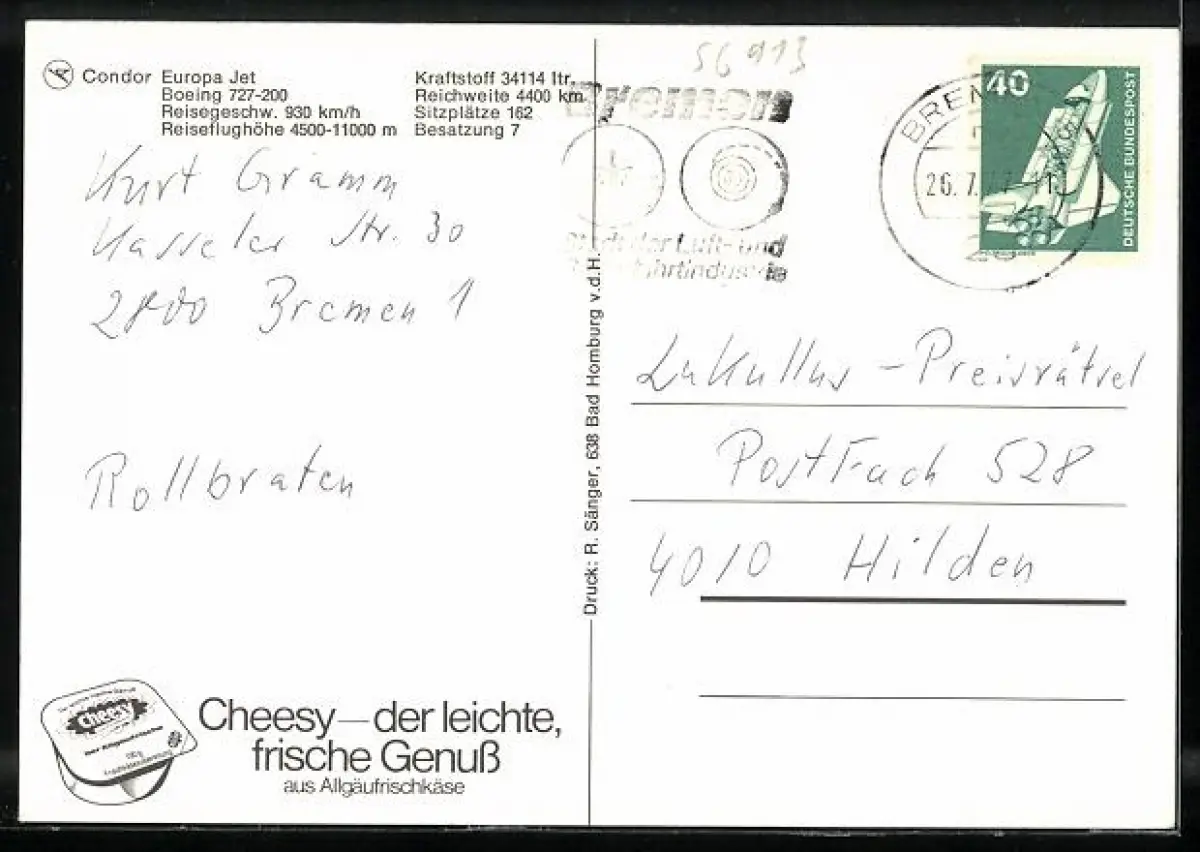 Condor Europa Jet
Boeing 727-200
Reisegeschw. 930 km/h
Reiseflughöhe 4500-11000 m
Kraftstoff 34114 ltr.
Reichweite 4400 km
Sitzplätze 162
Besatzung 7
56913
Bremen
Stadt der Luft- und
BREMEN
26.7.
40
DEUTSCHE BUNDESPOST
Kurt Gramm
Kasseler Str. 30
2800 Bremen 1
Rollbraten
Druck: R. Sänger, 638 Bad Homburg v.d.H.
Lukullus - Preisrätsel
Postfach 528
4010 Hilden
Cheesy
Cheesy—der leichte,
frische Genuß
aus Allgäufrischkäse